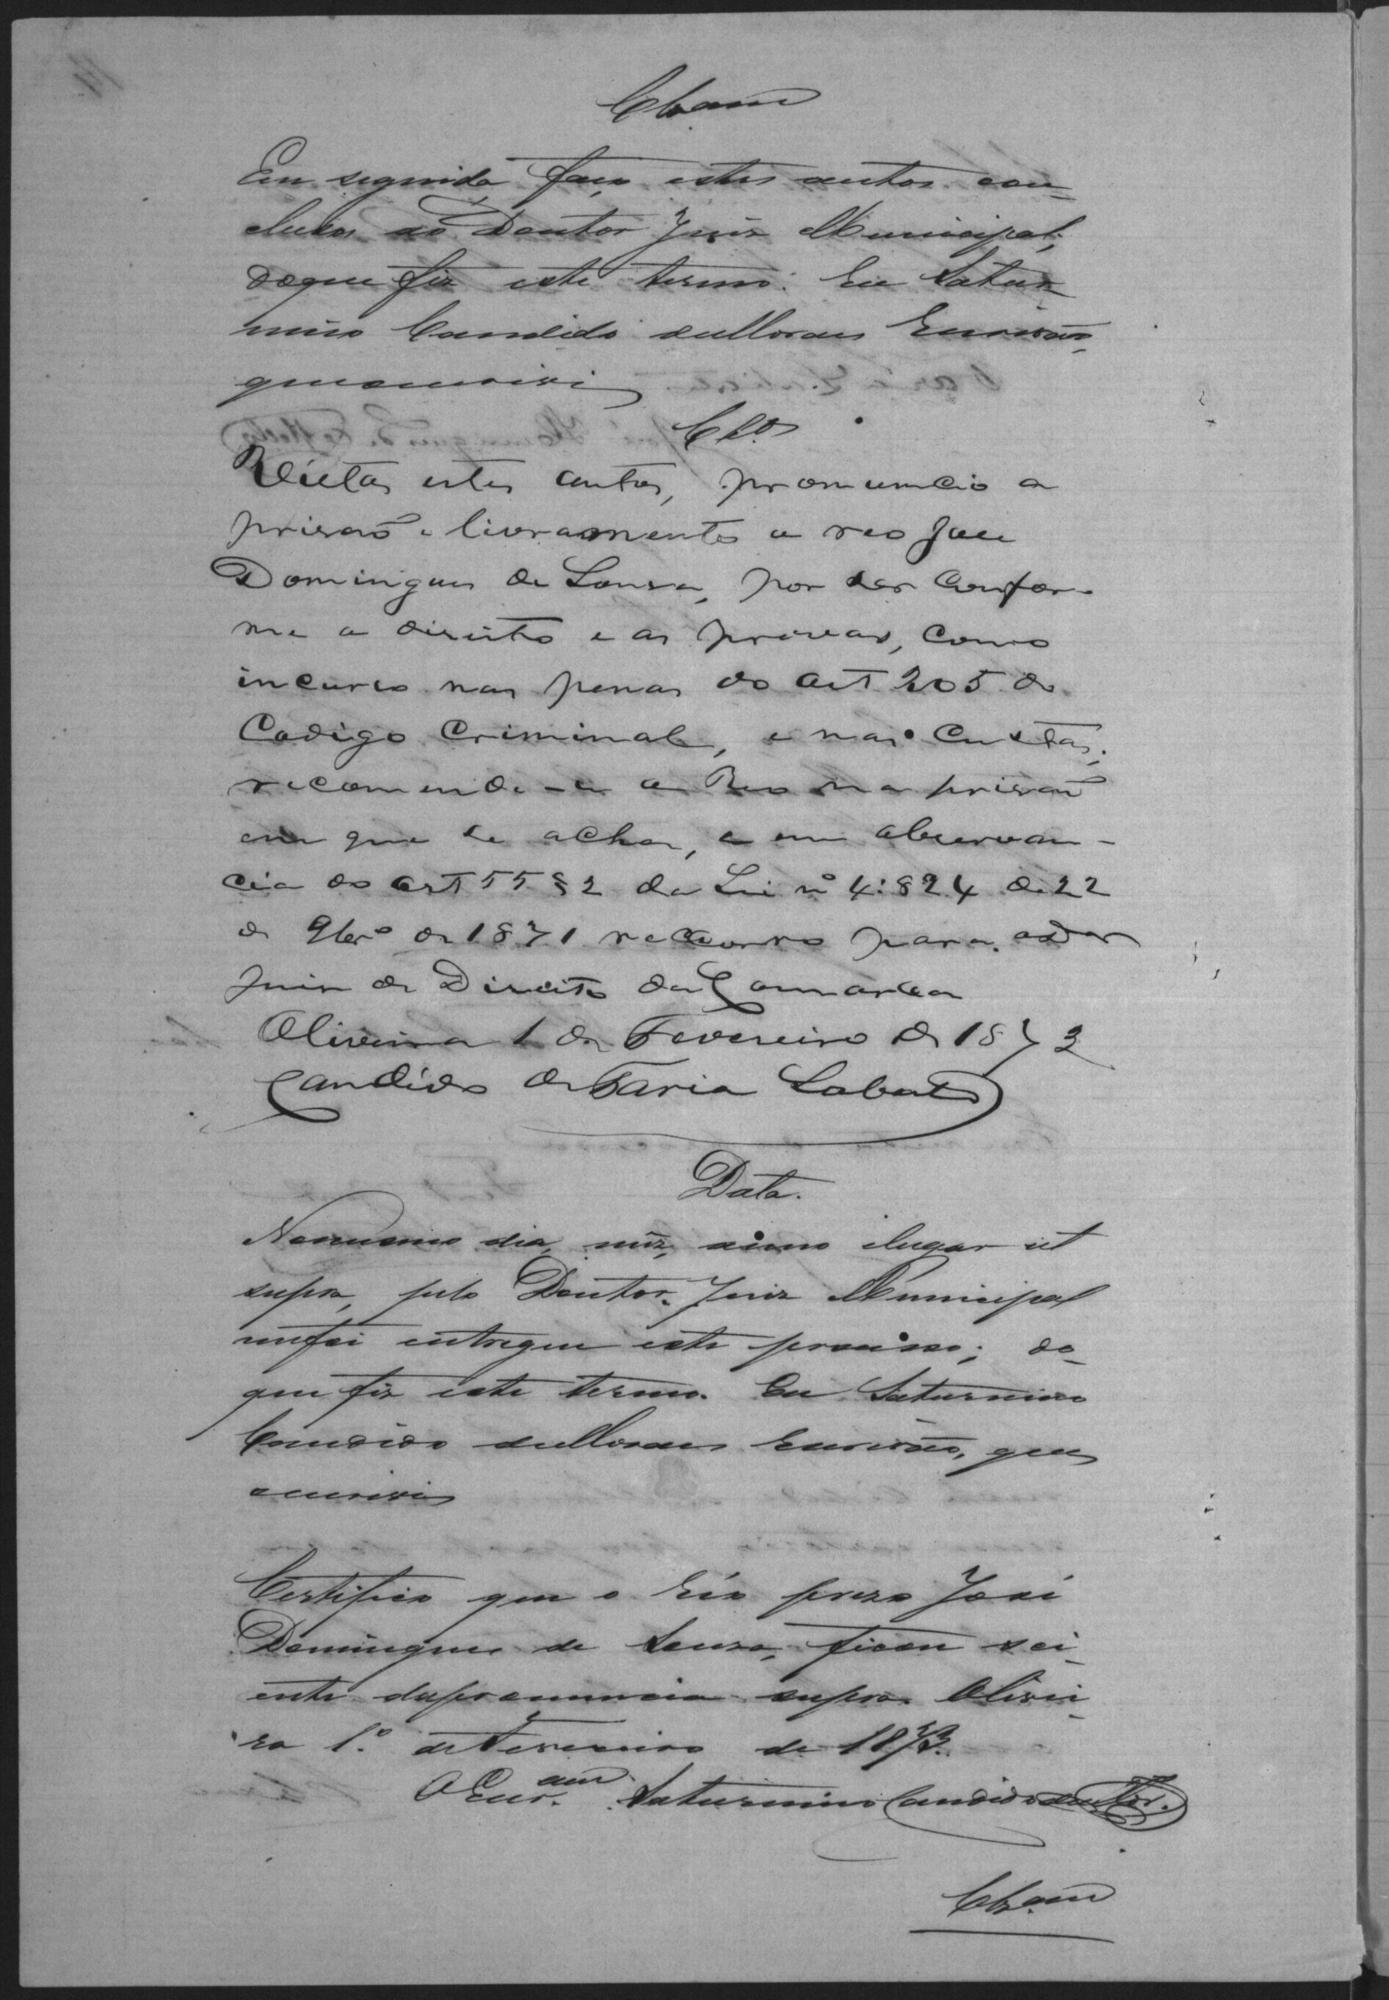 Clsam
Em seguida faço estes autos con-
clusos ao Doutor Juiz Municipal,
do que fiz este termo. Eu Satur-
nino Candido de Moraes Escrivão,
que escrevi
Clos
Vistos estes autos, pronuncio a
prisaõ e livramento o reo José
Domingues de Sousa, por ser Confor-
me a direito e as provas, como
incurso nas penas do art 205 do
Codigo Criminal, e nas Custas;
recomende-se o Reo na prisaõ
em que se acha, e em observan-
cia do art 55 § 2 da Lei nº 4:824 de 22
de 9brº de 1871 recorro para o Dor
Juiz de Direito da Comarca
Oliveira 1 de Fevereiro de 1873
Candido de Faria Lobato
Data.
No mesmo dia, mez, anno e lugar ut
supra, pelo Doutor Juiz Municipal
me foi entregue este processo; do
que fiz este termo. Eu Saturnino
Candido de Moraes Escrivão, que
escrevi
Certifico que o Réo prezo José
Domingues de Souza, ficou sci-
ente da pronuncia supra. Olivei-
ra 1º de Fevereiro de 1873.
O Escr.am Saturnino Candido de Mor.
Clsam